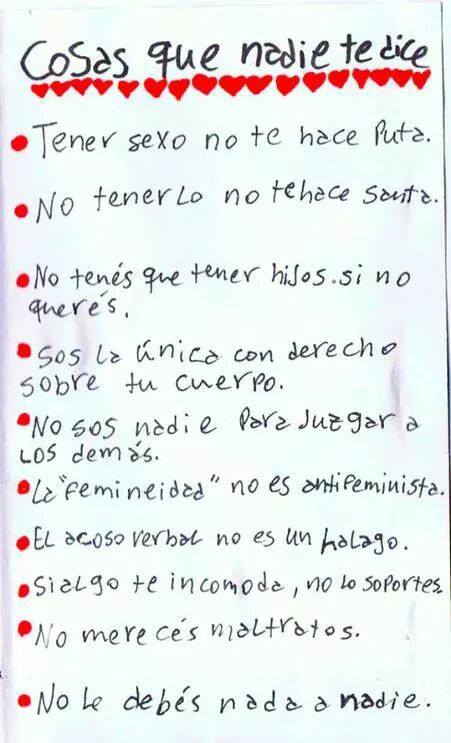 Cosas que nadie te dice
Tener sexo no te hace Puta.
No tenerlo no te hace santa.
No tenés que tener hijos.si no
querés.
Sos la única con derecho
sobre tu cuerpo.
No sos nadie para juzgar a
los demás.
La "femineidad" no es antifeminista.
El acoso verbal no es un halago.
Si algo te incomoda, no lo soportes
No merecés maltratos.
No le debés nada a nadie.